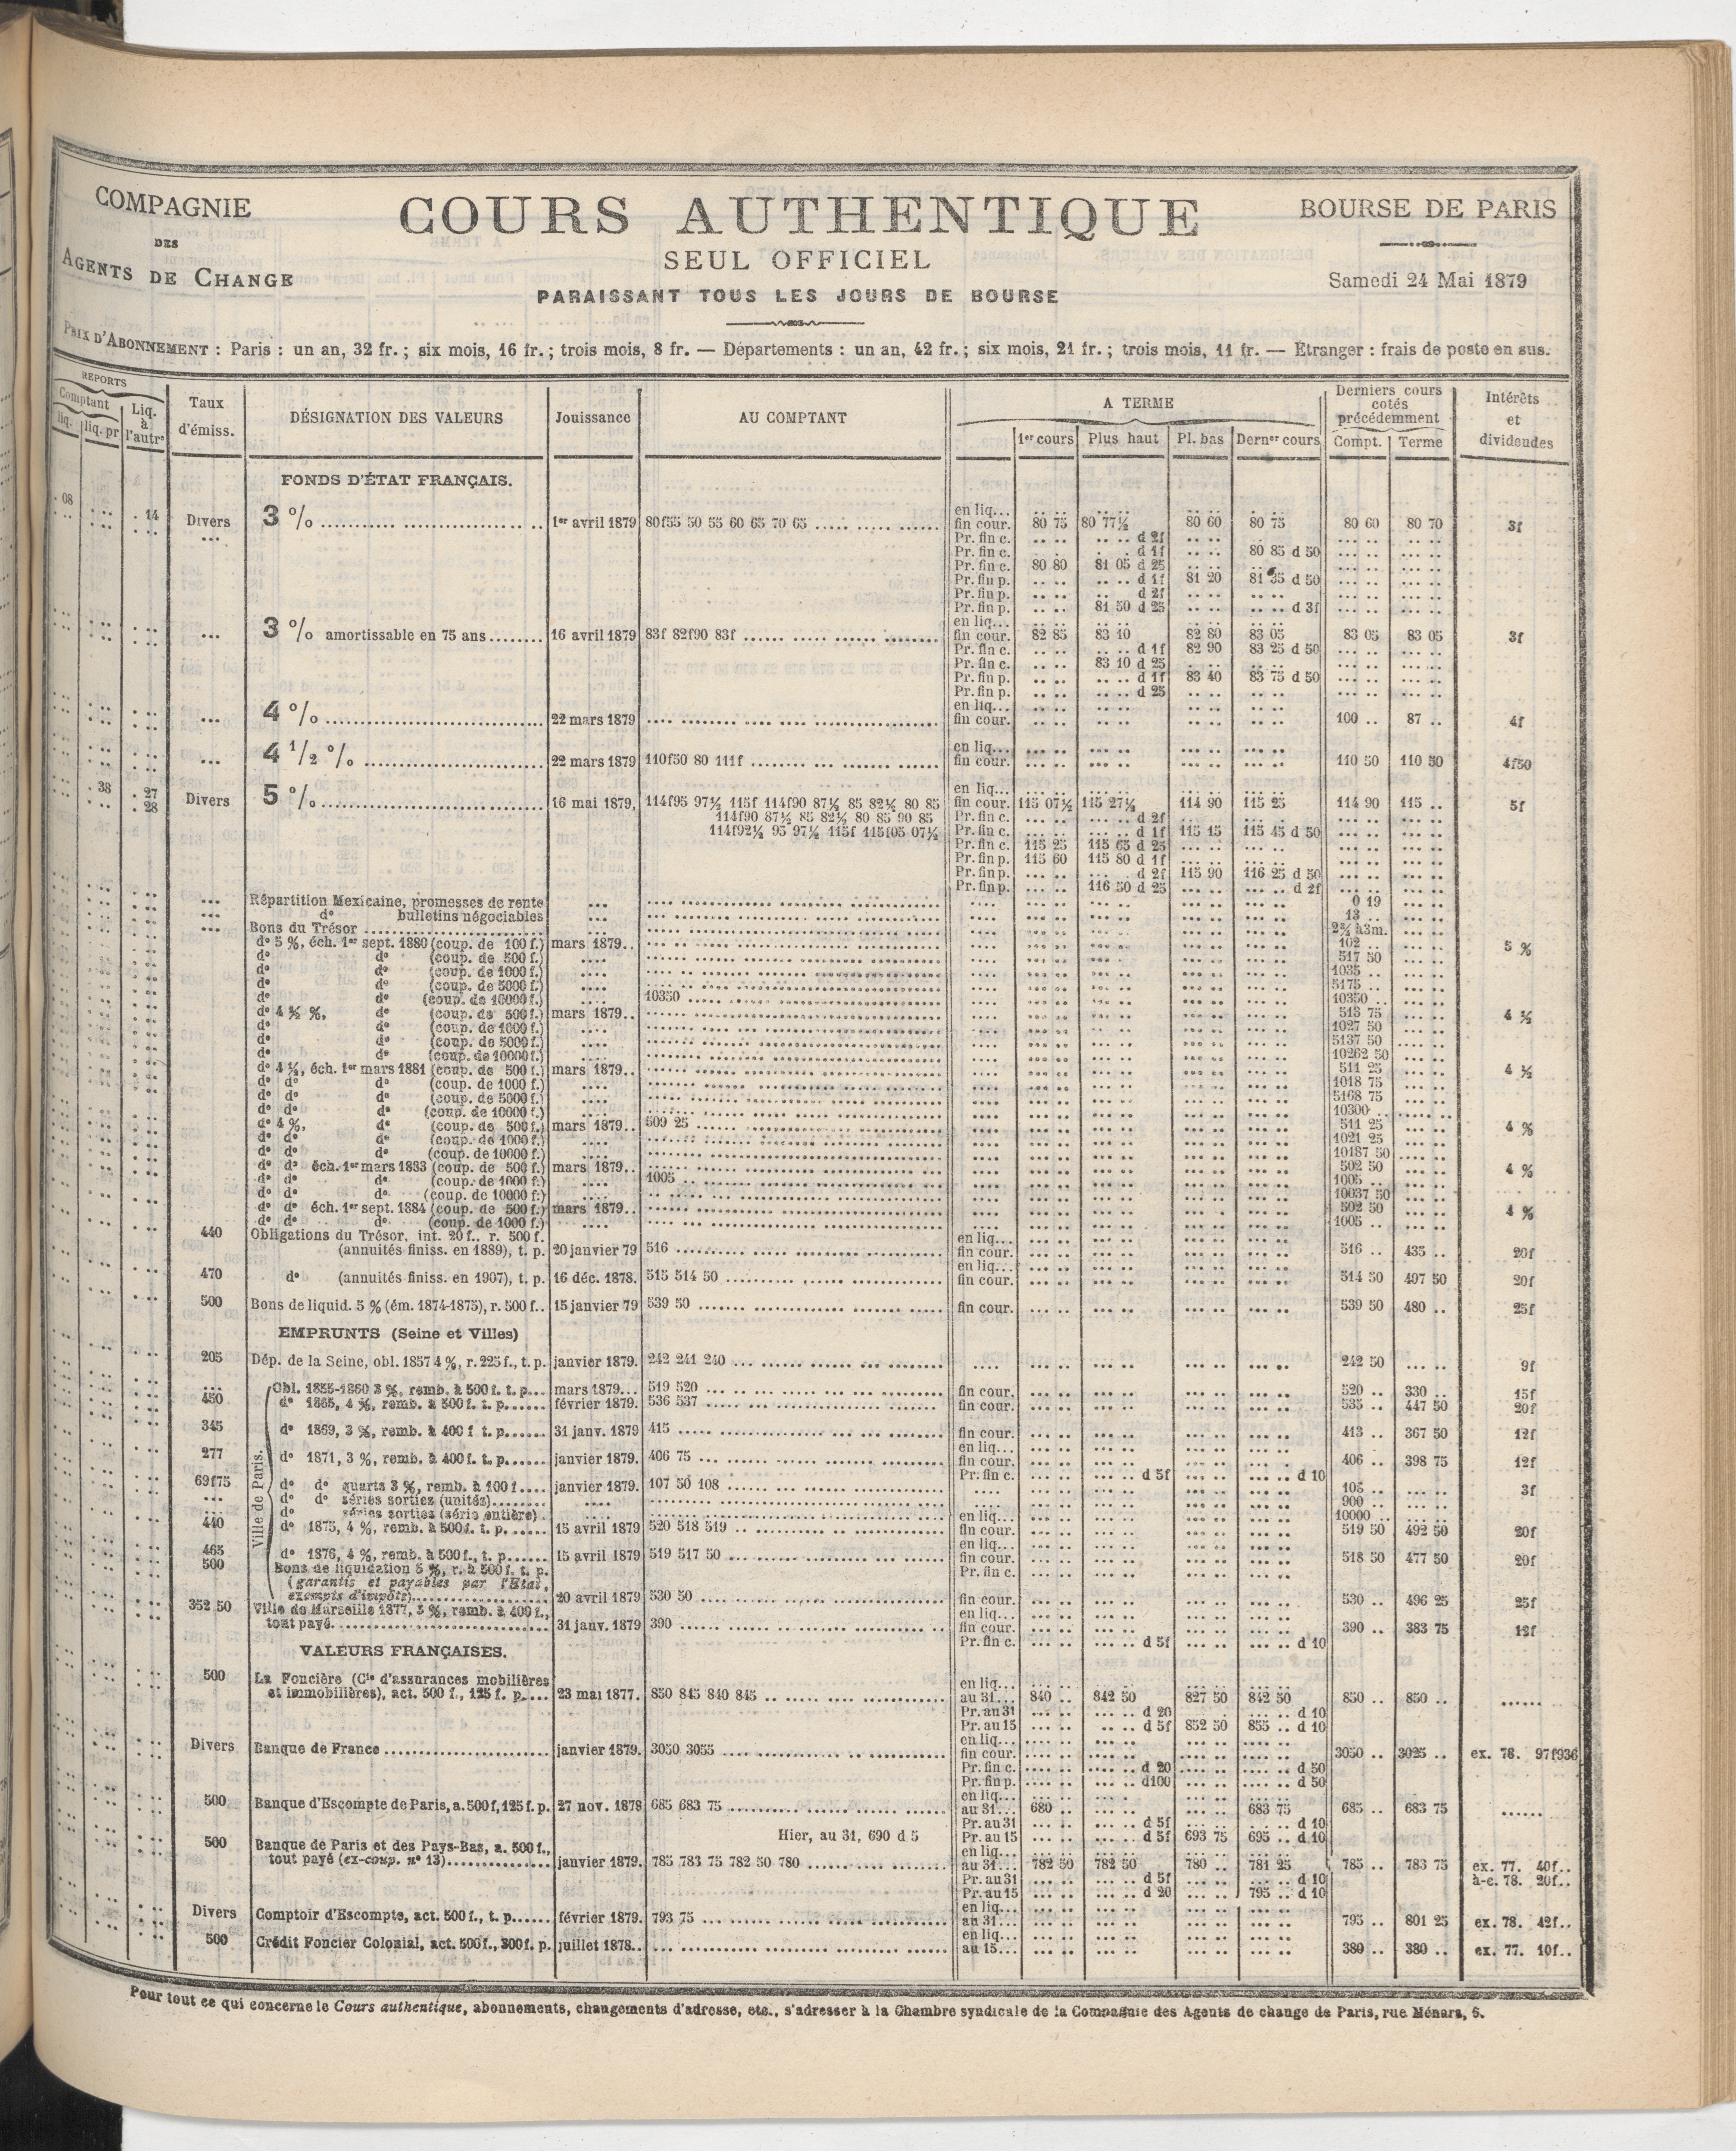 COMPAGNIE
DES
AGENTS DE CHANGE
COURS AUTHENTIQUE
SEUL OFFICIEL
PARAISSANT TOUS LES JOURS DE BOURSE
BOURSE DE PARIS
Samedi 24 Mai 1879
PRIX D'ABONNEMENT : Paris : un an, 32 fr. ; six mois, 16 fr. ; trois mois, 8 fr. — Départements : un an, 42 fr. ; six mois, 21 fr. ; trois mois, 11 fr. — Étranger : frais de poste en sus.
REPORTS
Comptant
liq. liq. pr
Liq. à l'autre
Taux d'émiss.
DÉSIGNATION DES VALEURS
Jouissance
AU COMPTANT
A TERME
1er cours Plus haut Pl. bas Derner cours
Derniers cours cotés précédemment
Compt. Terme
Intérêts et dividendes
FONDS D'ÉTAT FRANÇAIS.
en liq...
. 08 . 14 Divers 3 % 1er avril 1879 80f55 50 55 60 65 70 65 fin cour. 80 75 80 77½ 80 60 80 75 80 60 80 70 3f
Pr. fin c. d 2f
Pr. fin c. d 1f 80 85 d 50
Pr. fin c. 80 80 81 05 d 25
Pr. fin p. d 1f 81 20 81 35 d 50
Pr. fin p. d 2f
Pr. fin p. 81 50 d 25 d 3f
en liq...
3 % amortissable en 75 ans 16 avril 1879 83f 82f90 83f fin cour. 82 85 83 10 82 80 83 05 83 05 83 05 3f
Pr. fin c. d 1f 82 90 83 25 d 50
Pr. fin c. 83 10 d 25
Pr. fin p. d 1f 83 40 83 75 d 50
Pr. fin p. d 25
en liq...
4 % 22 mars 1879 fin cour. 100 .. 87 .. 4f
en liq...
4 1/2 % 22 mars 1879 110f50 80 111f fin cour. 110 50 110 50 4f50
en liq...
. 38 . 27 . 28 Divers 5 % 16 mai 1879, 114f95 97½ 115f 114f90 87½ 85 82½ 80 85 fin cour. 115 07½ 115 27½ 114 90 115 25 114 90 115 .. 5f
114f90 87½ 85 82½ 80 85 90 85 Pr. fin c. d 2f
114f92½ 95 97½ 115f 115f05 07½ Pr. fin c. d 1f 115 15 115 45 d 50
Pr. fin c. 115 25 115 65 d 25
Pr. fin p. 115 60 115 80 d 1f
Pr. fin p. d 2f 115 90 116 25 d 50
Pr. fin p. 116 50 d 25 d 2f
Répartition Mexicaine, promesses de rente 0 19
do bulletins négociables 13 ..
Bons du Trésor à 3m.
do 5 %, éch. 1er sept. 1880 (coup. de 100 f.) mars 1879.. 102 .. 5 %
do do (coup. de 500 f.) 517 50
do do (coup. de 1000 f.) 1035 ..
do do (coup. de 5000 f.) 5175 ..
do do (coup. de 10000 f.) 10350 10350 ..
do 4 ½ %, do (coup. de 500 f.) mars 1879.. 513 75 4 ½
do do (coup. de 1000 f.) 1027 50
do do (coup. de 5000 f.) 5137 50
do do (coup. de 10000 f.) 10262 50
do 4 ½, éch. 1er mars 1881 (coup. de 500 f.) mars 1879.. 511 25 4 ½
do do do (coup. de 1000 f.) 1018 75
do do do (coup. de 5000 f.) 5168 75
do do do (coup. de 10000 f.) 10300 ..
do 4 %, do (coup. de 500 f.) mars 1879.. 509 25 511 25 4 %
do do do (coup. de 1000 f.) 1021 25
do do (coup. de 10000 f.) 10187 50
do do éch. 1er mars 1883 (coup. de 500 f.) mars 1879.. 502 50 4 %
do do do (coup. de 1000 f.) 1005 .. 1005 ..
do do do (coup. de 10000 f.) 10037 50
do do éch. 1er sept. 1884 (coup. de 500 f.) mars 1879.. 502 50 4 %
do do do (coup. de 1000 f.) 1005 ..
440 Obligations du Trésor, int. 20 f.. r. 500 f. en liq...
(annuités finiss. en 1889), t. p. 20 janvier 79 516 fin cour. 516 .. 435 .. 20f
en liq...
470 do (annuités finiss. en 1907), t. p. 16 déc. 1878. 515 514 50 fin cour. 514 50 497 50 20f
500 Bons de liquid. 5 % (ém. 1874-1875), r. 500 f.. 15 janvier 79 539 50 fin cour. 539 50 480 .. 25f
EMPRUNTS (Seine et Villes)
205 Dép. de la Seine, obl. 1857 4 %, r. 225 f., t. p. janvier 1879. 242 241 240 242 50 9f
Ville de Paris.
Obl. 1855-1860 3 %, remb. à 500 f. t. p. mars 1879... 519 520 fin cour. 520 .. 330 .. 15f
450 do 1865, 4 %, remb. à 500 f. t. p. février 1879. 536 537 fin cour. 535 .. 447 50 20f
345 do 1869, 3 %, remb. à 400 f t. p. 31 janv. 1879 415 fin cour. 413 .. 367 50 12f
en liq...
277 do 1871, 3 %, remb. à 400 f. t. p. janvier 1879. 406 75 fin cour. 406 .. 398 75 12f
Pr. fin c. d 5f d 10
69f75 do do quarts 3 %, remb. à 100 f. janvier 1879. 107 50 108 105 .. 3f
do do séries sorties (unités) 900 ..
do séries sorties (série entière) 10000 ..
en liq...
440 do 1875, 4 %, remb. à 500 f. t. p. 15 avril 1879 520 518 519 fin cour. 519 50 492 50 20f
en liq...
465 do 1876, 4 %, remb. à 500 f., t. p. 15 avril 1879 519 517 50 fin cour. 518 50 477 50 20f
500 Bons de liquidation 5 %, r. à 500 f. t. p. Pr. fin c.
(garantis et payables par l'Etat,
exempts d'impôts) 20 avril 1879 530 50 fin cour. 530 .. 496 25 25f
352 50 Ville de Marseille 1877, 3 %, remb. à 400 f., en liq...
tout payé 31 janv. 1879 390 fin cour. 390 .. 383 75 12f
Pr. fin c. d 5f d 10
VALEURS FRANÇAISES.
500 La Foncière (Cie d'assurances mobilières en liq...
et immobilières), act. 500 f., 125 f. p. 23 mai 1877. 850 845 840 845 au 31... 840 .. 842 50 827 50 842 50 850 .. 850 ..
Pr. au 31 d 20 d 10
Pr. au 15 d 5f 852 50 855 .. d 10
en liq...
Divers Banque de France janvier 1879. 3050 3055 fin cour. 3050 .. 3025 .. ex. 78. 97f936
Pr. fin c. d 20 d 50
Pr. fin p. d100 d 50
en liq...
500 Banque d'Escompte de Paris, a. 500 f, 125 f. p. 27 nov. 1878 685 683 75 au 31... 680 .. 683 75 685 .. 683 75
Pr. au 31 d 5f d 10
Hier, au 31, 690 d 5 Pr. au 15 d 5f 693 75 695 .. d 10
500 Banque de Paris et des Pays-Bas, a. 500 f., en liq...
tout payé (ex-coup. no 13) janvier 1879. 785 783 75 782 50 780 au 31... 782 50 782 50 780 .. 781 25 785 .. 783 75 ex. 77. 40f..
Pr. au 31 d 5f d 10 à-c. 78. 20f..
Pr. au 15 d 20 795 .. d 10
en liq...
Divers Comptoir d'Escompte, act. 500 f., t. p. février 1879. 793 75 au 31... 795 .. 801 25 ex. 78. 42f..
en liq...
500 Crédit Foncier Colonial, act. 500 f., 300 f. p. juillet 1878.. au 15... 380 .. 380 .. ex. 77. 10f..
Pour tout ce qui concerne le Cours authentique, abonnements, changements d'adresse, etc., s'adresser à la Chambre syndicale de la Compagnie des Agents de change de Paris, rue Ménars, 6.